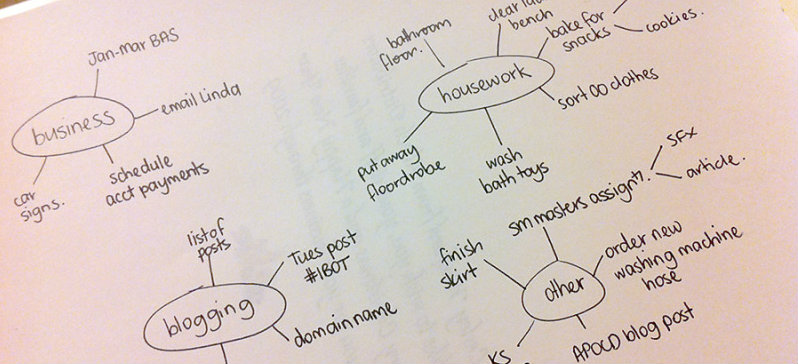 Jan-mar BAS
business
email Linda
schedule
acct payments
car
signs.
bathroom
floor.
bench
bake for
snacks
cookies.
housework
sort OO clothes
put away
floordrobe
wash
bath toys
list of
posts
Tues post
#IBOT
blogging
domain name
sm masters assignt?.
SFX
article.
finish
skirt
other
order new
washing machine
hose
APOCD blog post
KS